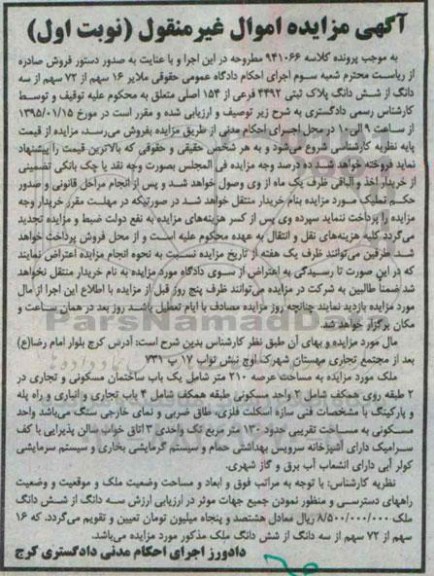 آگهی مزایده اموال غیرمنقول (نوبت اول)
به موجب پرونده کلاسه ۹۴۱۰۶۶ مطروحه در این اجرا و با عنایت به صدور دستور فروش صادره
از ریاست محترم شعبه سوم اجرای احکام دادگاه عمومی حقوقی ملایر ۱۶ سهم از ۷۲ سهم از سه
دانگ از شش دانگ پلاک ثبتی ۴۴۹۲ فرعی از ۱۵۴ اصلی متعلق به محکوم علیه توقیف و توسط
کارشناس رسمی دادگستری به شرح زیر توصیف و ارزیابی شده و مقرر است در مورخ ۱۳۹۵/۰۱/۱۵
از ساعت ۹ الی ۱۰ در محل اجرای احکام مدنی از طریق مزایده بفروش می‌رسد، مزایده از قیمت
پایه نظریه کارشناسی شروع می‌شود و به هر شخص حقیقی و حقوقی که بالاترین قیمت را پیشنهاد
نماید فروخته خواهد شد. ده درصد وجه مزایده فی المجلس بصورت وجه نقد یا چک بانکی تضمینی
از خریدار اخذ و الباقی ظرف یک ماه از وی وصول خواهد شد و پس از انجام مراحل قانونی و صدور
حکم تملیک مورد مزایده بنام خریدار منتقل خواهد شد در صورتیکه در مهلت مقرر خریدار وجه
مزایده را پرداخت ننماید سپرده وی پس از کسر هزینه‌های مزایده به نفع دولت ضبط و مزایده تجدید
می‌گردد کلیه هزینه‌های نقل و انتقال به عهده محکوم علیه است و از محل فروش پرداخت خواهد
شد طرفین می‌توانند ظرف یک هفته از تاریخ مزایده نسبت به نحوه انجام مزایده اعتراض نمایند
که در این صورت تا رسیدگی به اعتراض از سوی دادگاه مورد مزایده به نام خریدار منتقل نخواهد
شد ضمنا طالبین به شرکت در مزایده می‌توانند ظرف پنج روز قبل از مزایده با اطلاع این اجرا از مال
مورد مزایده بازدید نمایند چنانچه روز مزایده مصادف با ایام تعطیل باشد روز بعد در همان ساعت و
مکان برگزار خواهد شد
مال مورد مزایده و بهای آن طبق نظر کارشناس بدین شرح است: آدرس کرج بلوار امام رضا(ع)
بعد از مجتمع تجاری مهستان شهرک اوج نبش تواب ۱۷ پ ۷۳۱
ملک مورد مزایده به مساحت عرصه ۲۱۰ متر شامل یک باب ساختمان مسکونی و تجاری در
۲ طبقه روی همکف شامل ۲ واحد مسکونی طبقه همکف شامل ۴ باب تجاری و انباری و راه پله
و پارکینگ با مشخصات فنی سازه اسکلت فلزی، طاق ضربی و نمای خارجی سنگ می‌باشد واحد
مسکونی به مساحت تقریبی حدود ۱۳۰ متر مربع تک واحدی ۳ اتاق خواب سالن پذیرایی با کف
سرامیک دارای آشپزخانه سرویس بهداشتی حمام و سیستم گرمایشی بخاری و سیستم سرمایشی
کولر آبی دارای انشعاب آب برق و گاز شهری.
نظریه کارشناس: با توجه به مراتب فوق و ابعاد و مساحت وضعیت ملک و موقعیت و وضعیت
راههای دسترسی و منظور نمودن جمیع جهات موثر در ارزیابی ارزش سه دانگ از شش دانگ
ملک ۸/۵۰۰/۰۰۰/۰۰۰ ریال معادل هشتصد و پنجاه میلیون تومان تعیین و تقویم می‌گردد. که ۱۶
سهم از ۷۲ سهم از سه دانگ از شش دانگ ملک مذکور مورد مزایده می‌باشد.
دادورز اجرای احکام مدنی دادگستری کرج
ParsNamadData